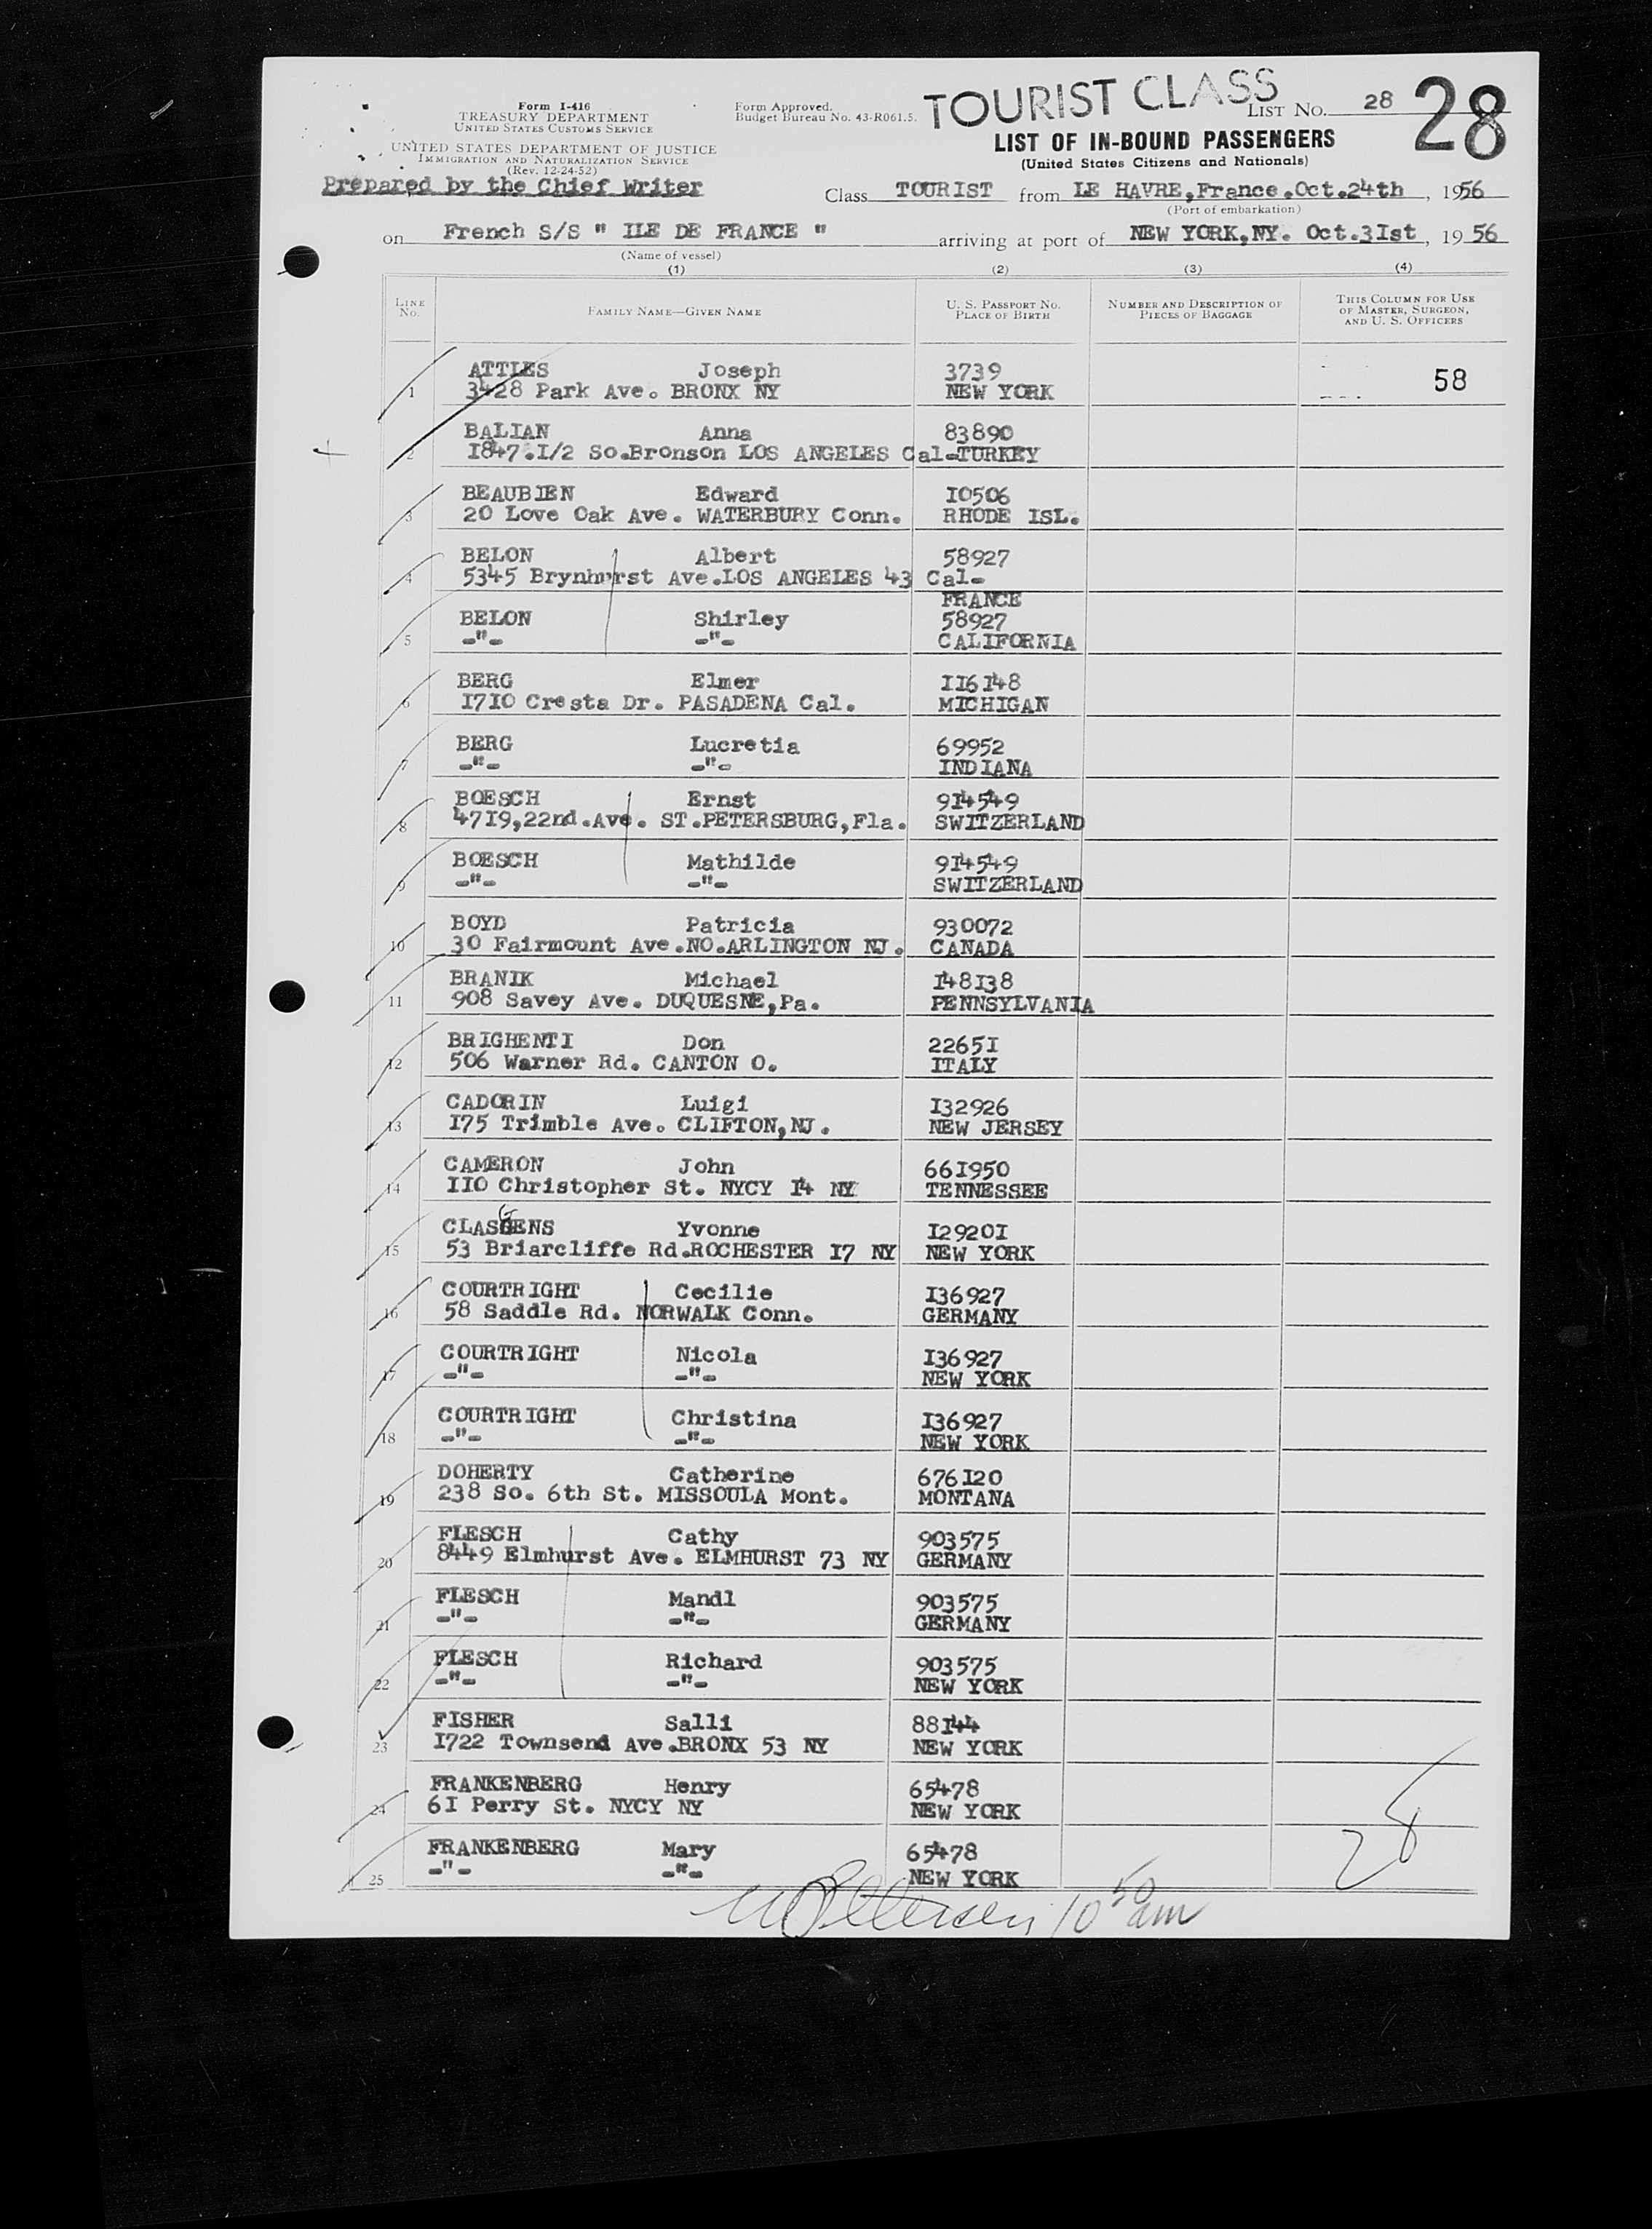 Form I-416
TREASURY DEPARTMENT
UNITED STATES CUSTOMS SERVICE
UNITED STATES DEPARTMENT OF JUSTICE
IMMIGRATION AND NATURALIZATION SERVICE
(Rev. 12-24-52)
Form Approved.
Budget Bureau No. 43-R061.5.
TOURIST CLASS
LIST No. 28
28
LIST OF IN-BOUND PASSENGERS
(United States Citizens and Nationals)
Prepared by the Chief Writer
Class TOURIST from LE HAVRE,France.Oct.24th, 1956
(Port of embarkation)
on French S/S " ILE DE FRANCE " arriving at port of NEW YORK,NY. Oct.3Ist, 19 56
(Name of vessel)
(1) (2) (3) (4)
LINE No. FAMILY NAME—GIVEN NAME U. S. PASSPORT No. PLACE OF BIRTH NUMBER AND DESCRIPTION OF PIECES OF BAGGAGE THIS COLUMN FOR USE OF MASTER, SURGEON, AND U. S. OFFICERS
ATTLES Joseph 3739 58
1 3428 Park Ave. BRONX NY NEW YORK
BALIAN Anna 83890
2 I847.I/2 So.Bronson LOS ANGELES Cal-TURKEY
BEAUBIEN Edward I0506
3 20 Love Oak Ave. WATERBURY Conn. RHODE ISL.
BELON Albert 58927
4 5345 Brynhurst Ave.LOS ANGELES 43 Cal-
FRANCE
BELON Shirley 58927
5 -"- -"- CALIFORNIA
BERG Elmer II6I48
6 I7I0 Cresta Dr. PASADENA Cal. MICHIGAN
BERG Lucretia 69952
7 -"- -"- INDIANA
BOESCH Ernst 9I4549
8 47I9,22nd.Ave. ST.PETERSBURG,Fla. SWITZERLAND
BOESCH Mathilde 9I4549
9 -"- -"- SWITZERLAND
BOYD Patricia 930072
10 30 Fairmount Ave.NO.ARLINGTON NJ. CANADA
BRANIK Michael I48I38
11 908 Savey Ave. DUQUESNE,Pa. PENNSYLVANIA
BRIGHENTI Don 2265I
12 506 Warner Rd. CANTON O. ITALY
CADORIN Luigi I32926
13 I75 Trimble Ave. CLIFTON,NJ. NEW JERSEY
CAMERON John 66I950
14 II0 Christopher St. NYCY I4 NY TENNESSEE
CLASGENS Yvonne I2920I
15 53 Briarcliffe Rd.ROCHESTER I7 NY NEW YORK
COURTRIGHT Cecilie I36927
16 58 Saddle Rd. NORWALK Conn. GERMANY
COURTRIGHT Nicola I36927
17 -"- -"- NEW YORK
COURTRIGHT Christina I36927
18 -"- -"- NEW YORK
DOHERTY Catherine 676I20
19 238 So. 6th St. MISSOULA Mont. MONTANA
FLESCH Cathy 903575
20 8449 Elmhurst Ave. ELMHURST 73 NY GERMANY
FLESCH Mandl 903575
21 -"- -"- GERMANY
FLESCH Richard 903575
22 -"- -"- NEW YORK
FISHER Salli 88I44
23 I722 Townsend Ave.BRONX 53 NY NEW YORK
FRANKENBERG Henry 65478
24 6I Perry St. NYCY NY NEW YORK
FRANKENBERG Mary 65478
25 -"- -"- NEW YORK
28
10 50 am